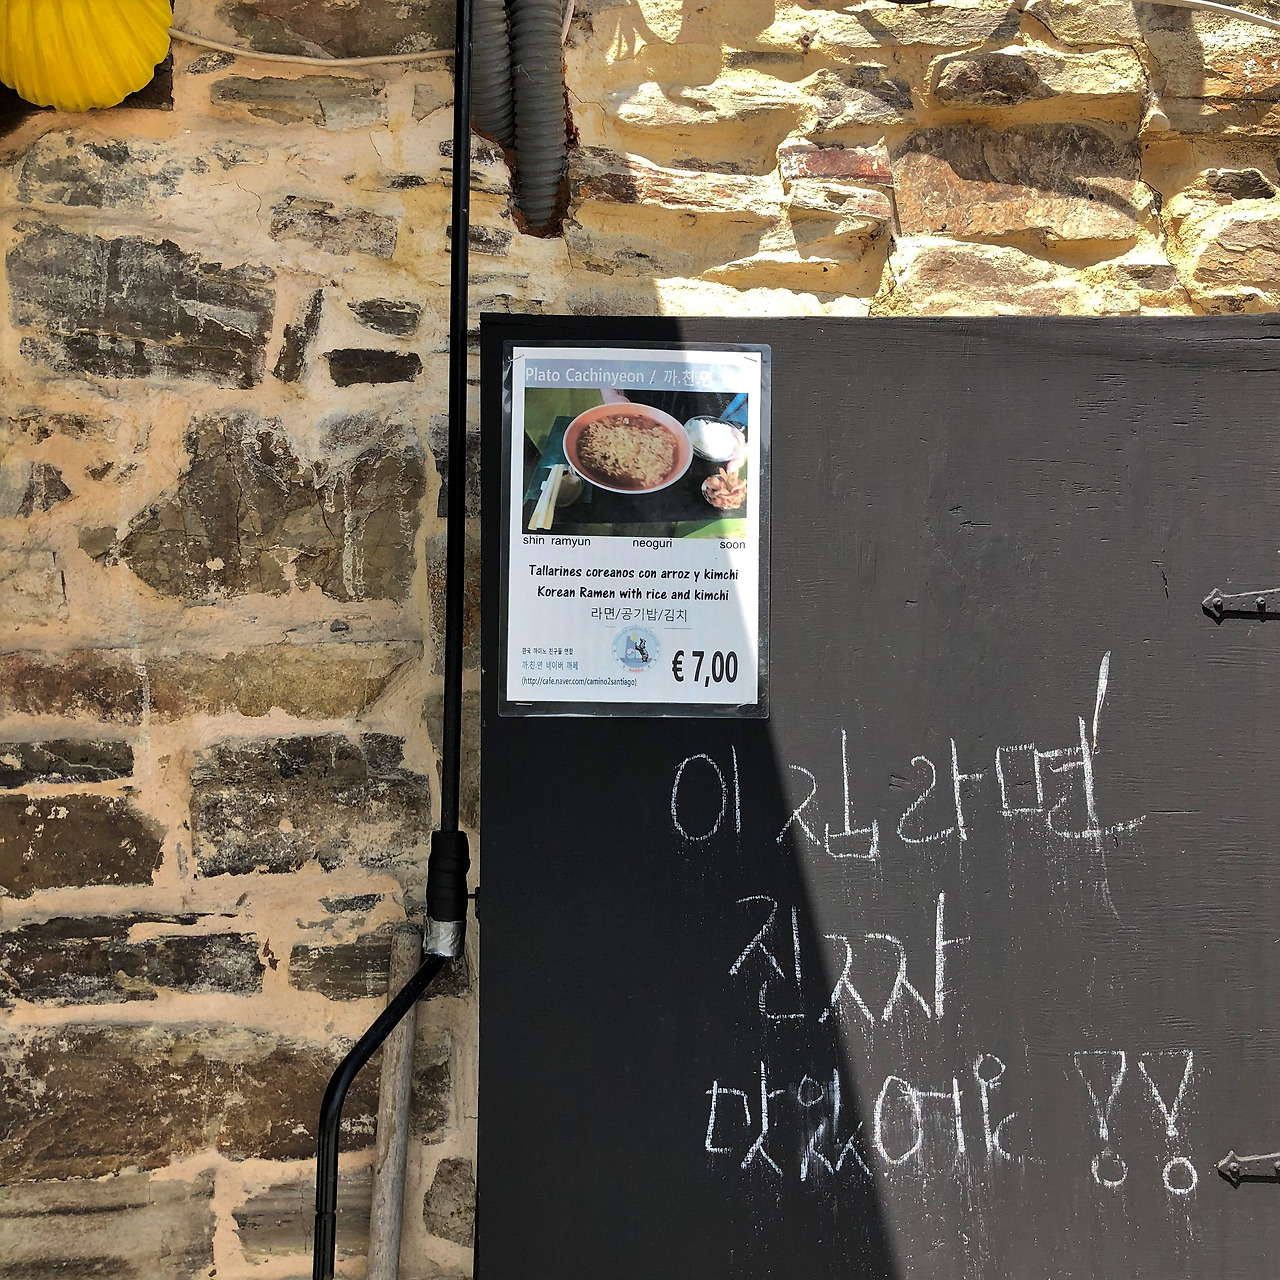 Plato Cachinyeon / 까.친.연
shin ramyun neoguri soon
Tallarines coreanos con arroz y kimchi
Korean Ramen with rice and kimchi
라면/공기밥/김치
한국 까미노 친구들 연합
까.친.연 네이버 까페
(http://cafe.naver.com/camino2santiago)
€ 7,00
이 집 라면
진짜
맛있어요 !!